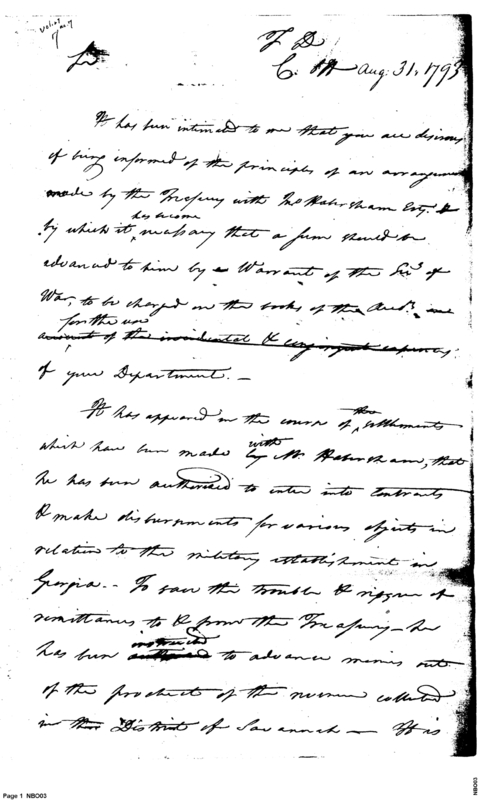 T D
Sir
C. O Aug. 31, 1793
It has been intimated to me that you are desirous
of being informed of the principles of an arrangement
made by the Treasury with Jno Habersham Esqr. &
has become
by which it necessary that a sum should be
advanced to him by a Warrant of the Secy of
War, to be charged on the books of the Audr.
for the use
amount of the incidental & contingent expences
of your Department. —
It has appeared in the course of the settlements
with
which have been made by Mr Habersham, that
he has been authorised to enter into Contracts
& make disbursments for various objects in
relation to the military establishment in
Georgia. - To save the trouble & risque of
remittances to & from the Treasury — he
instructed
has been authorised to advance monies out
of the product of the revenue collected
in the District of Savannah — It is
Page 1 NBO03
NBO03